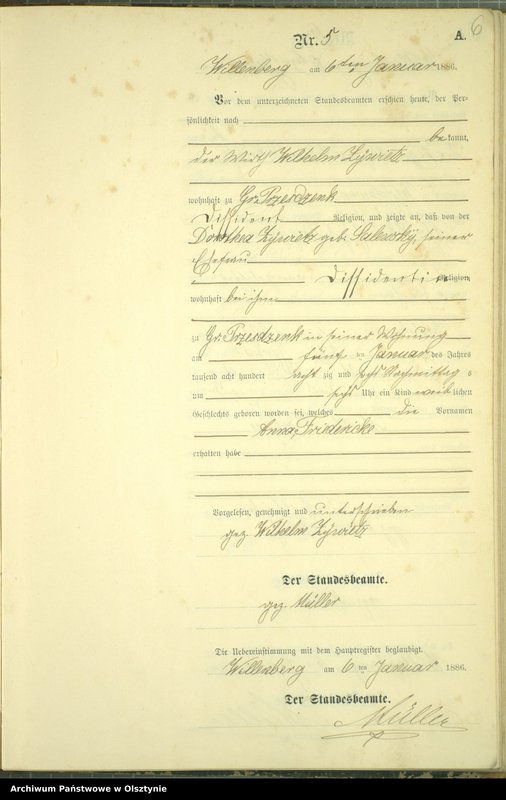 6
Nr. 5 A.
Willenberg am 6ten Januar 1886.
Vor dem unterzeichneten Standesbeamten erschien heute, der Per-
sönlichkeit nach
bekannt,
der Wirth Wilhelm Zÿwietz
wohnhaft zu Gr. Przesdzenk
Dissident Religion, und zeigte an, daß von der
Dorothea Zÿwietz geb. Salewsky, seiner
Ehefrau
Dissidentin Religion,
wohnhaft bei ihm
zu Gr. Przesdzenk in seiner Wohnung
am fünf ten Januar des Jahres
tausend acht hundert acht zig und sechs Nachmittags
um sechs Uhr ein Kind weiblichen
Geschlechts geboren worden sei, welches die Vornamen
Anna, Fridericke
erhalten habe
Vorgelesen, genehmigt und unterschrieben
gez. Wilhelm Zÿwietz
Der Standesbeamte.
gez. Müller
Die Uebereinstimmung mit dem Hauptregister beglaubigt.
Willenberg am 6 ten Januar 1886.
Der Standesbeamte.
Müller
Archiwum Państwowe w Olsztynie